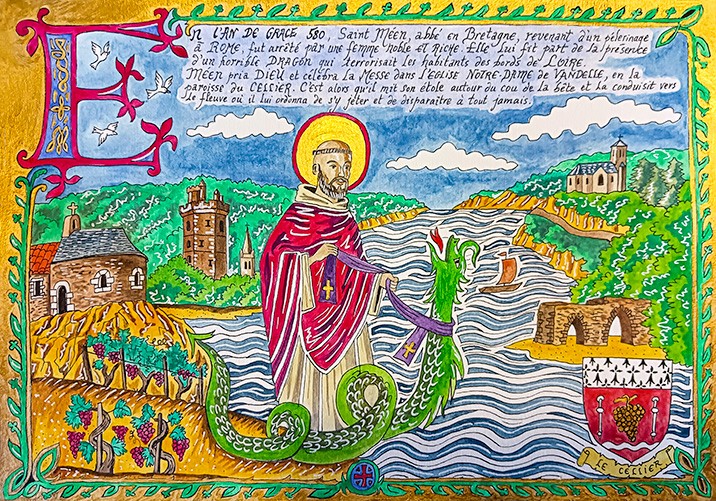 EN L'AN DE GRACE 580, Saint Méen, abbé en Bretagne, revenant d'un pèlerinage
à ROME, fut arrêté par une femme noble et riche. Elle lui fit part de la présence
d'un horrible DRAGON qui terrorisait les habitants des bords de LOIRE.
MÉEN pria DIEU et célébra la Messe dans l'EGLISE NOTRE-DAME de VANDELLE, en la
paroisse du CELLIER. C'est alors qu'il mit son étole autour du cou de la bête et la conduisit vers
le fleuve où il lui ordonna de s'y jeter et de disparaître à tout jamais.
LE CELLIER